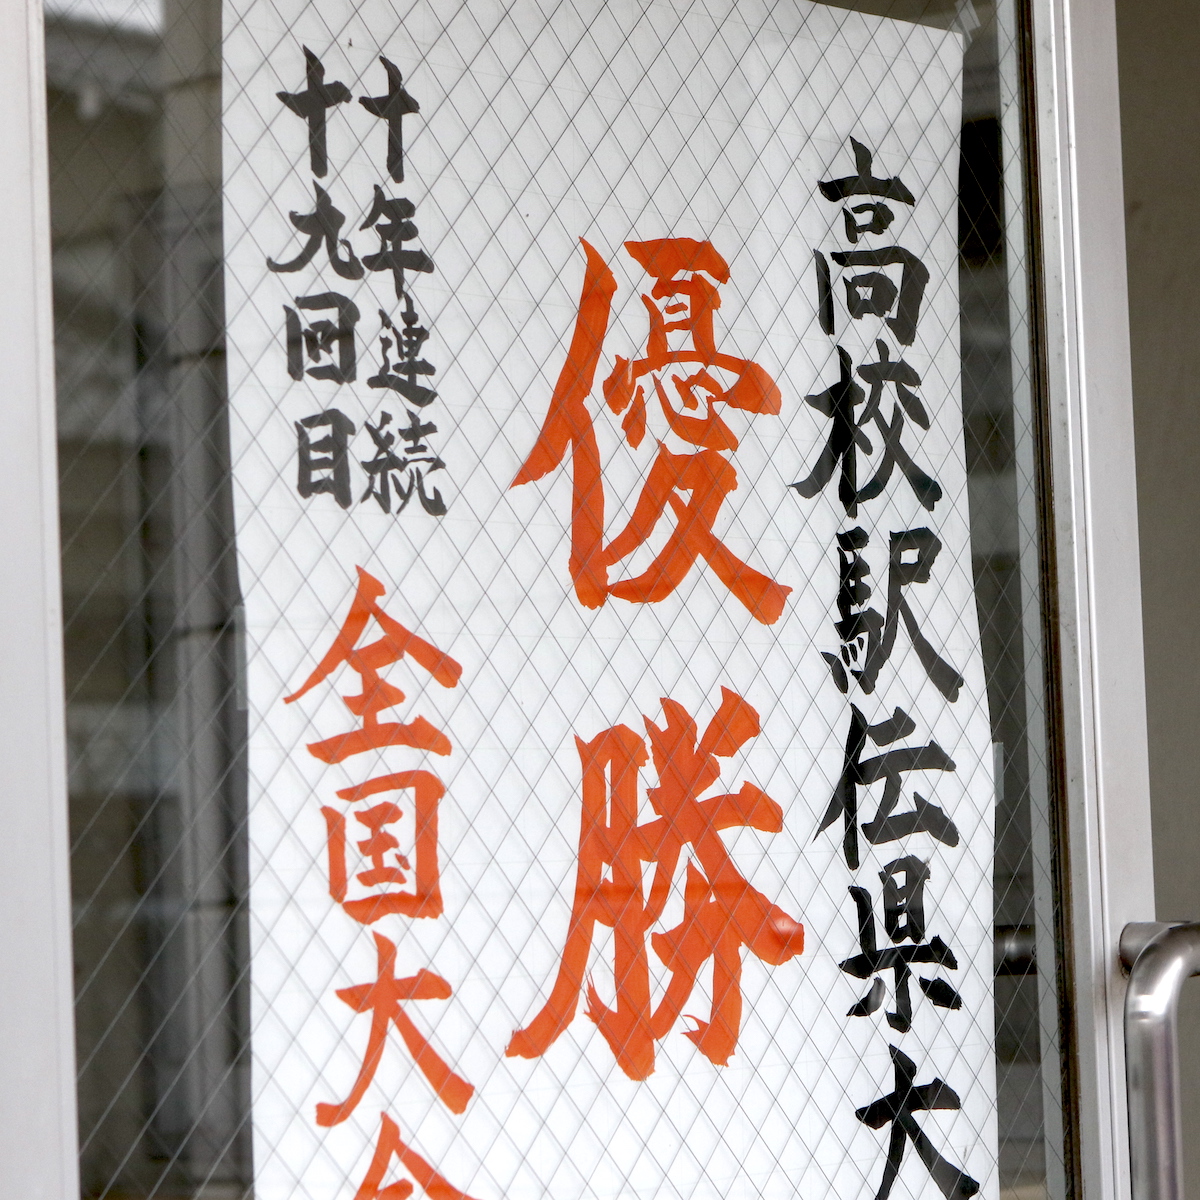 高校駅伝県大
優勝
十年連続
十九回目
全国大会